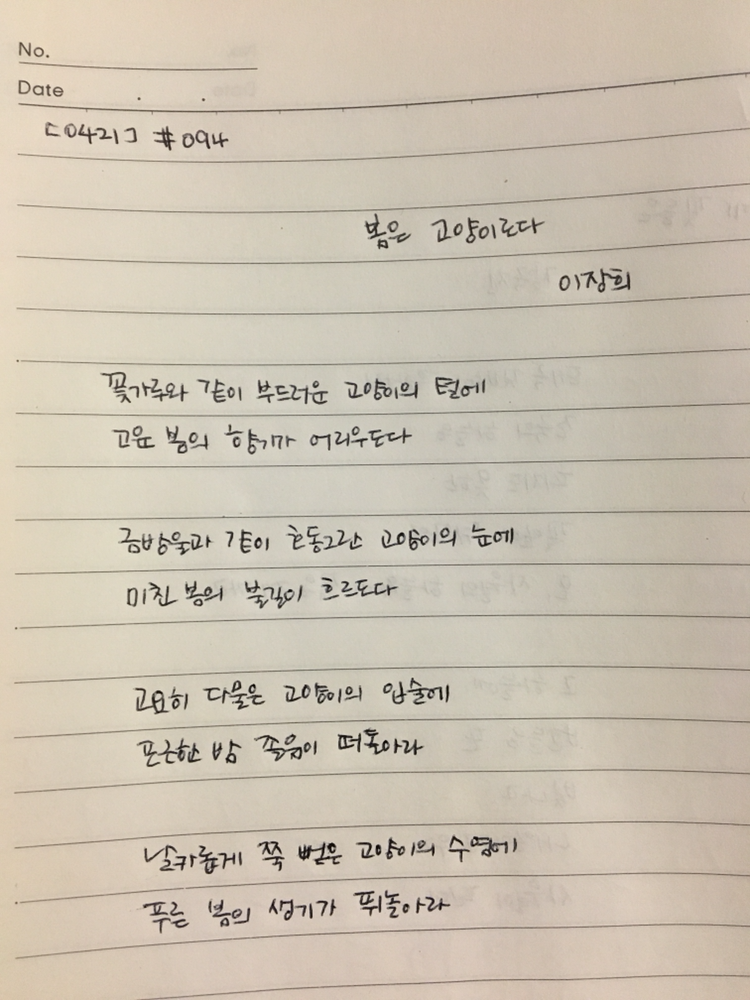 No.
Date . .
[0421] #094
봄은 고양이로다
이장희
꽃가루와 같이 부드러운 고양이의 털에
고운 봄의 향기가 어리우도다
금방울과 같이 호동그란 고양이의 눈에
미친 봄의 불길이 흐르도다
고요히 다물은 고양이의 입술에
포근한 밤 졸음이 떠돌아라
날카롭게 쭉 뻗은 고양이의 수염에
푸른 봄의 생기가 뛰놀아라